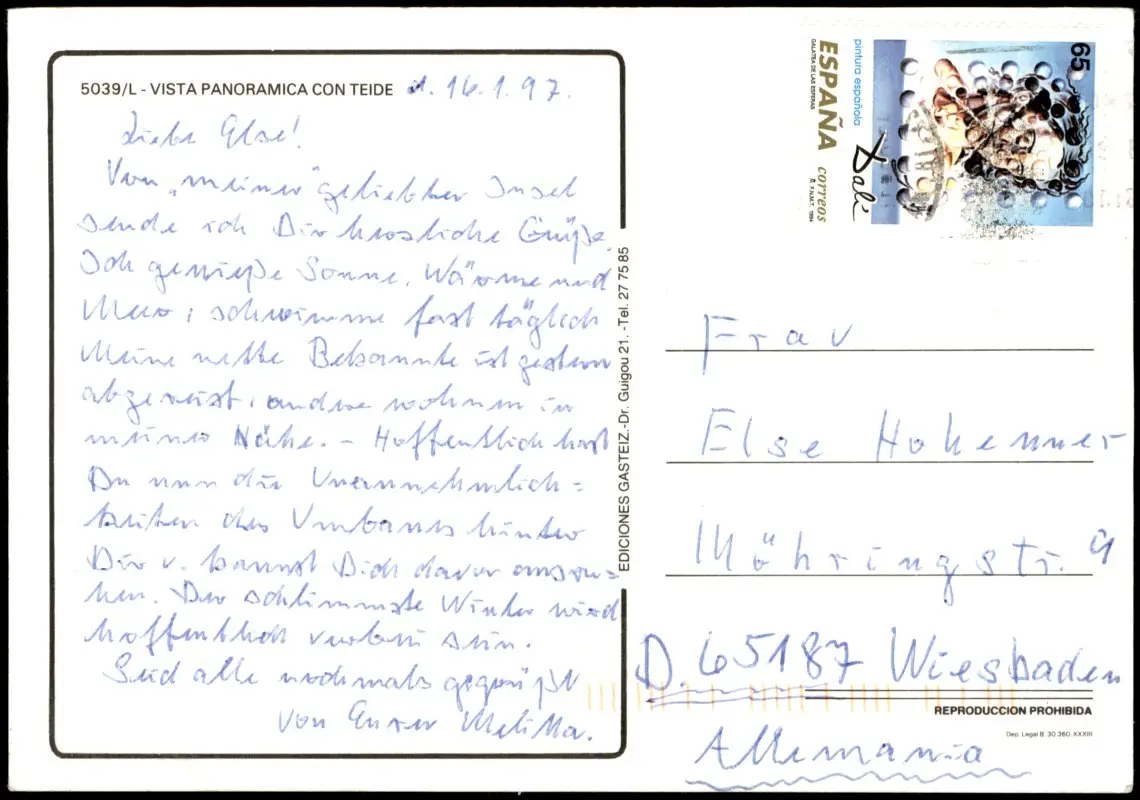 5039/L - VISTA PANORAMICA CON TEIDE d. 16.1.97.
Liebe Else!
Von „meiner" geliebten Insel
sende ich Dir herzliche Grüße.
Ich genieße Sonne, Wärme und
Meer, schwimme fast täglich
Meine nette Bekannte ist gestern
abgereist, andere wohnen in
meiner Nähe. – Hoffentlich hast
Du nun die Unannehmlich=
keiten des Umbaus hinter
Dir u. kannst Dich davon ausru=
hen. Der schlimmste Winter wird
hoffentlich vorbei sein.
Seid alle nochmals gegrüßt
von Eurer
EDICIONES GASTEIZ.-Dr. Guigou 21. -Tel. 27 75 85
65
pintura española
ESPAÑA
GALATEA DE LAS ESFERAS
correos
F.N.M.T. 1994
Dalí
Frau
Else Hohenner
Möhringstr. 9
D. 65187 Wiesbaden
REPRODUCCION PROHIBIDA
Dep. Legal B. 30.360-XXXIII
Allemania